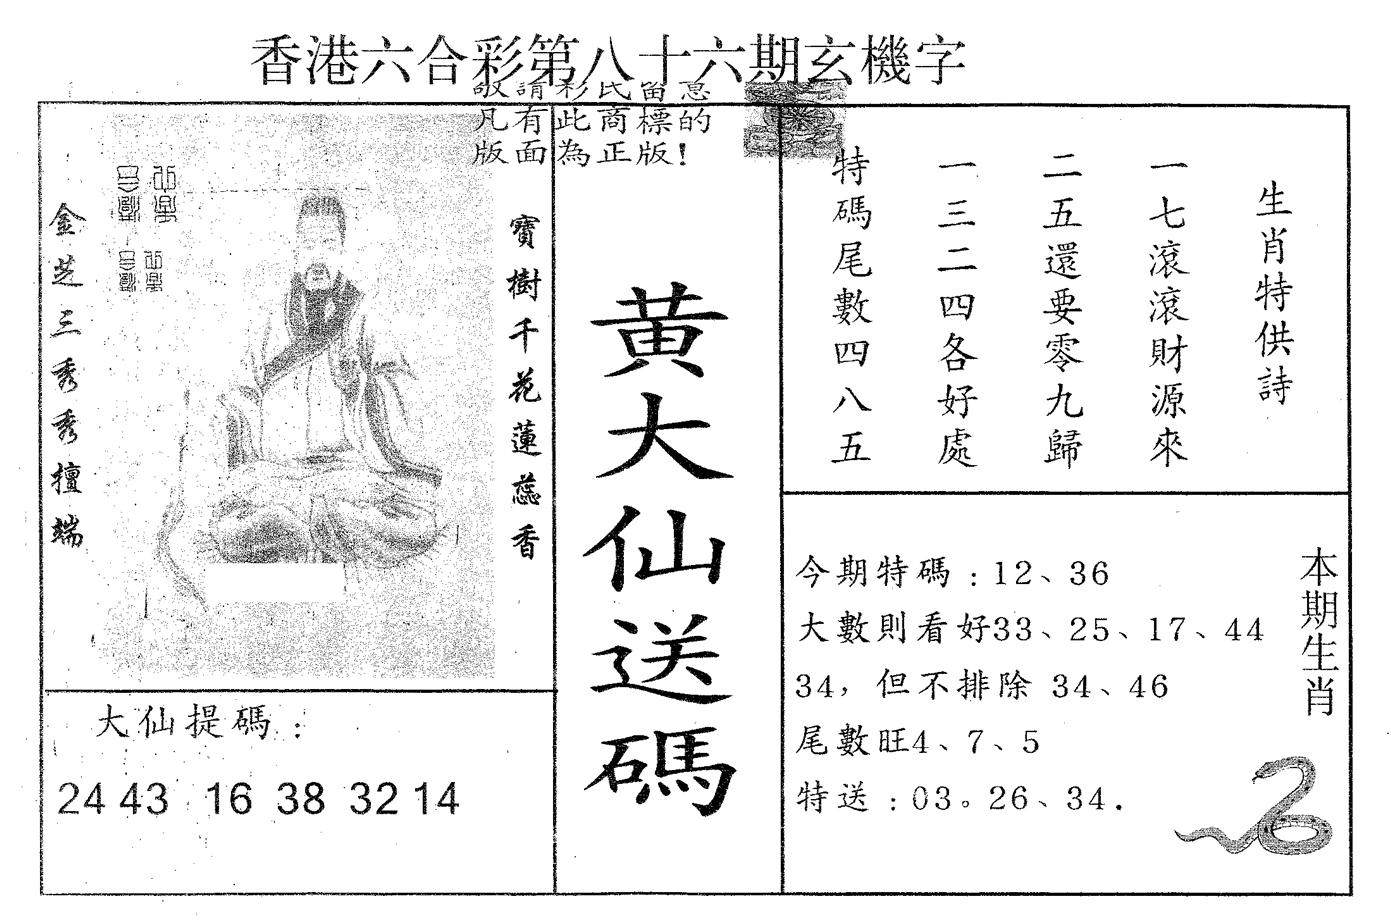 香港六合彩第八十六期玄機字
敬請彩民留意
凡有此商標的
版面為正版!
寶樹千花蓮蕊香
金芝三秀秀擅端
黃大仙送碼
生肖特供詩
一七滾滾財源來
二五還要零九歸
一三二四各好處
特碼尾數四八五
本期生肖
今期特碼：12、36
大數則看好33、25、17、44
34，但不排除 34、46
尾數旺4、7、5
特送：03。26、34.
大仙提碼：
24 43 16 38 32 14